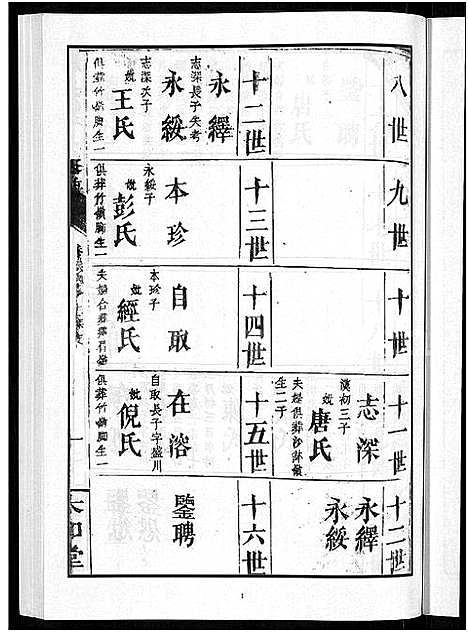 八世
九世
十世
十一世
志深
漢初三子
妣唐氏
生二子
十二世
永繹
永綏
十二世
永繹
志深長子失考
永綏
志深次子
妣王氏
俱葬竹嶺胸生一
十三世
本珍
永綏子
妣彭氏
俱葬竹嶺胸生一
十四世
自取
本珍子
妣經氏
十五世
在溶
自取長子字盛川
妣倪氏
俱葬竹嶺胸生一
十六世
鑒聘
一
太和堂